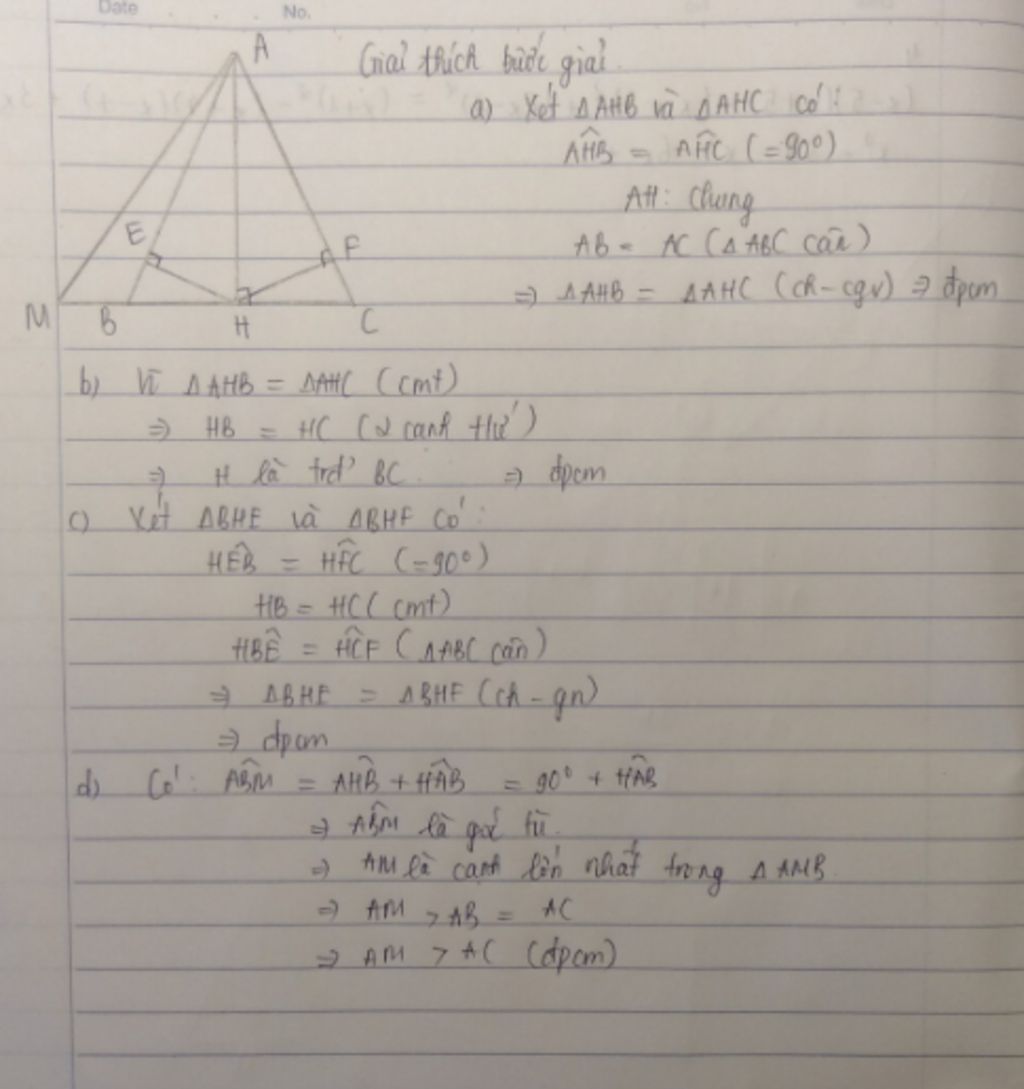 Date No.
A
Giải thích bước giải.
a) Xét ΔAHB và ΔAHC có:
AĤB = AĤC (=90°)
AH: Chung
E
F
AB = AC (ΔABC cân)
⇒ ΔAHB = ΔAHC (ch-cgv) ⇒ đpcm
M B H C
b) Vì ΔAHB = ΔAHC (cmt)
⇒ HB = HC (2 cạnh t/ư)
⇒ H là trđ' BC. ⇒ đpcm
c) Xét ΔBHE và ΔBHF có:
HÊB = HF̂C (=90°)
HB = HC (cmt)
HB̂E = HĈF (ΔABC cân)
⇒ ΔBHE = ΔBHF (ch - gn)
⇒ đpcm
d) Có: AB̂M = AĤB + HÂB = 90° + HÂB
⇒ AB̂M là góc tù.
⇒ AM là cạnh lớn nhất trong ΔAMB
⇒ AM > AB = AC
⇒ AM > AC (đpcm)